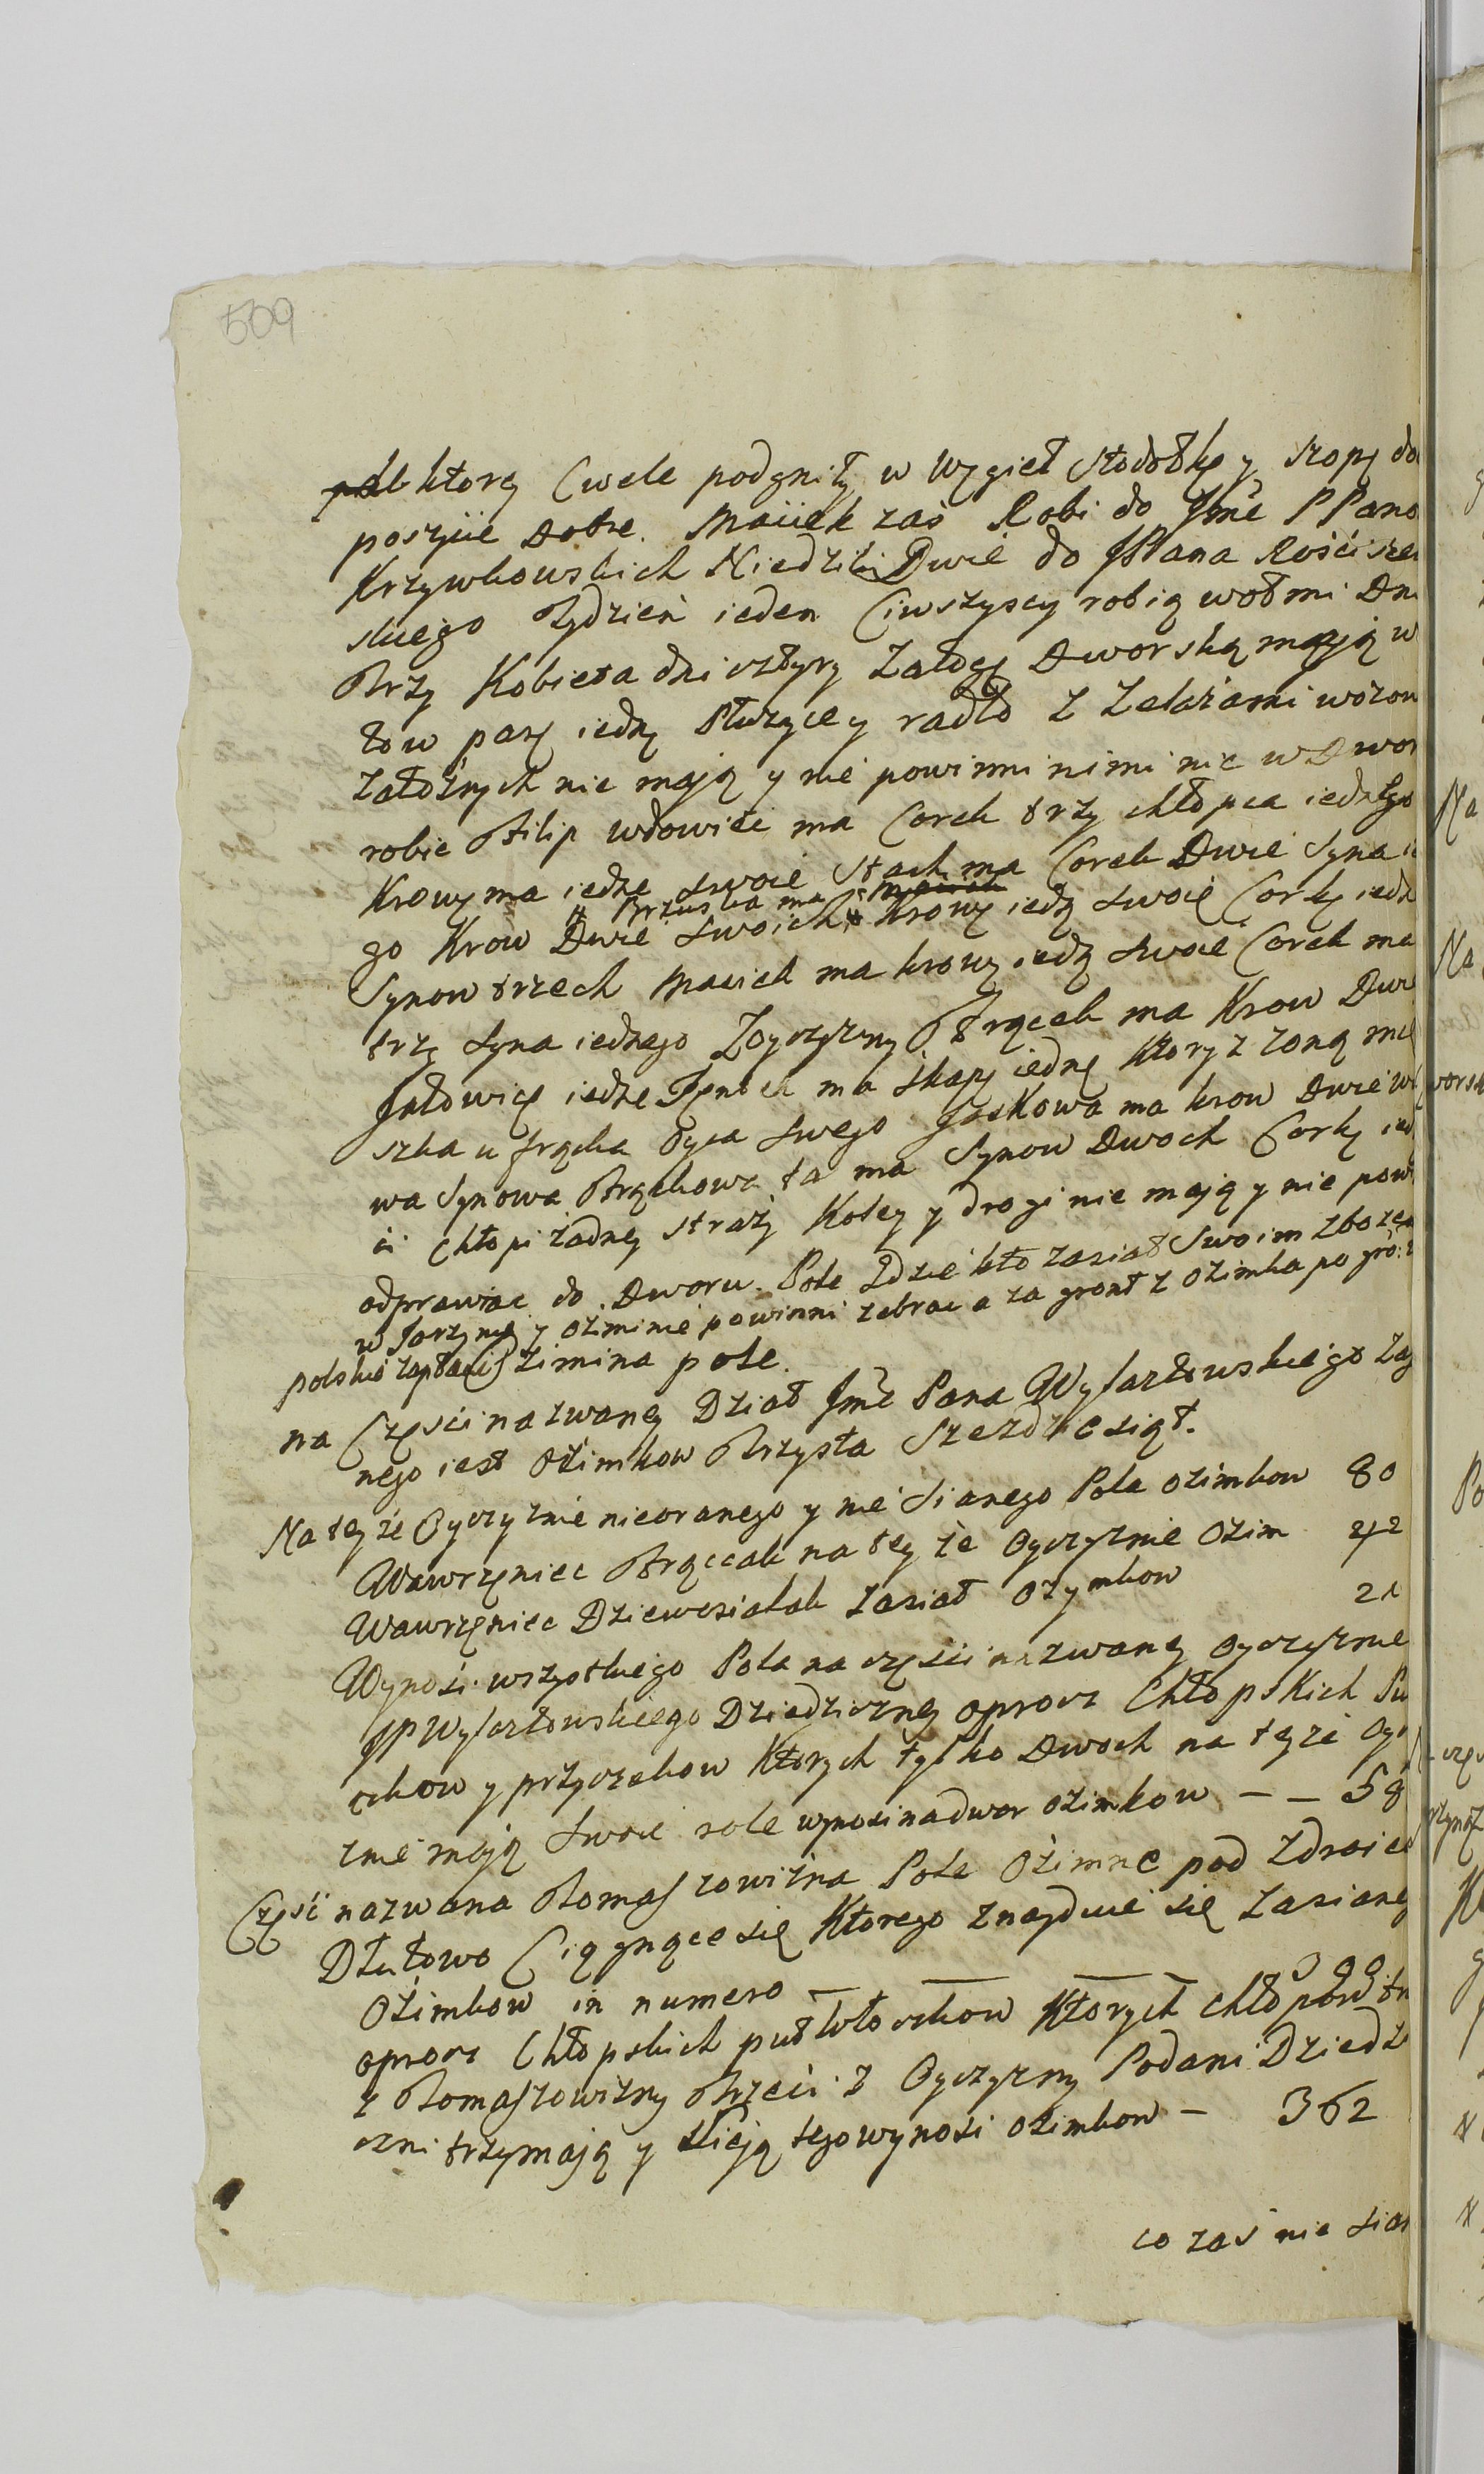 509
ktorey Cwele podgniły w Węgieł stodołkę y szopę do
poszycie Dobre. Maciek zas Robi do Jmć PPano
Krzywkowskich Niedzili Dwie do JPana Rościsze
skiego Tydzien ieden Ci wszyscy robią wołmi Dni
Trzy Kobieta dni cztyry Załogę Dworską mają w
łow parę iedną Płuzyce y radło z Zelazami wozow
Załoźnych nie mają y nie powinni nimi nic w Dwor
robic Filip wdowiec ma Corek trzy chłopca iednego
Krowę ma iednę swoie Stach ma Corek Dwie Syna ie
Brzuska ma
go Krow Dwie swoich Krowę iedną swoię Corkę iedn
Synow trzech Maciek ma krowę iedną swoię Corek ma
trzy Syna iednego Zoyczyzny Frącek ma Krow Dwie
Jałowicę iednę Jęndrek ma Skapę iednę Ktory z zoną mie
szka u frącka Oyca swego Jaskowa ma krow Dwie w
wa Synowa Frąckowa ta ma Synow Dwoch Corkę ied
ci Chłopi żadney straży Koley y drogi nie mają y nie pow
odprawiac do Dworu. Pole Gdzie kto zasiał Swoim zbozem
w Jarzynę y oziminie powinni zebrac a za gront z ozimka po gro:
polskie zapłacic zimina pole.
na Częsci nazwaney Dział Jmć Pana Wysazłowskiego Zas
nego iest Oźimkow Trzysta Szezdziesiąt.
Na teyże Oyczyznie nieoranego y nie sianego Pola ozimkow 80
Wawrzyniec Frącczak na teyże Oyczyznie Ozim 42
Wawrzyniec Dziewcsiałak zasiał ozymkow 21
Wynosi wszystkiego Pola na częsci nazwaney oyczyznie
JP Wysazłowskiego Dziedziczney oprocz Chłopskich Pu
ckow y przyczekow Ktorych tylko Dwoch na teyże Oy
znie mają swoie role wynosi na dwor ozimkow - - 58
Część nazwana Tomaszowizna Pole Ozimne pod Zdroie
Dłutowo Ciągnące się Ktorego znayduie się zasianey
Ozimkow in numero — — — 300
oprocz Chłopskich pułwłockow Ktorych chłopow
z Tomaszowizny Trzeci z Oyczyzny Podani Dziedz
czni trzymają y sieją tego wynosi ozimkow - 362
co zas nie sian